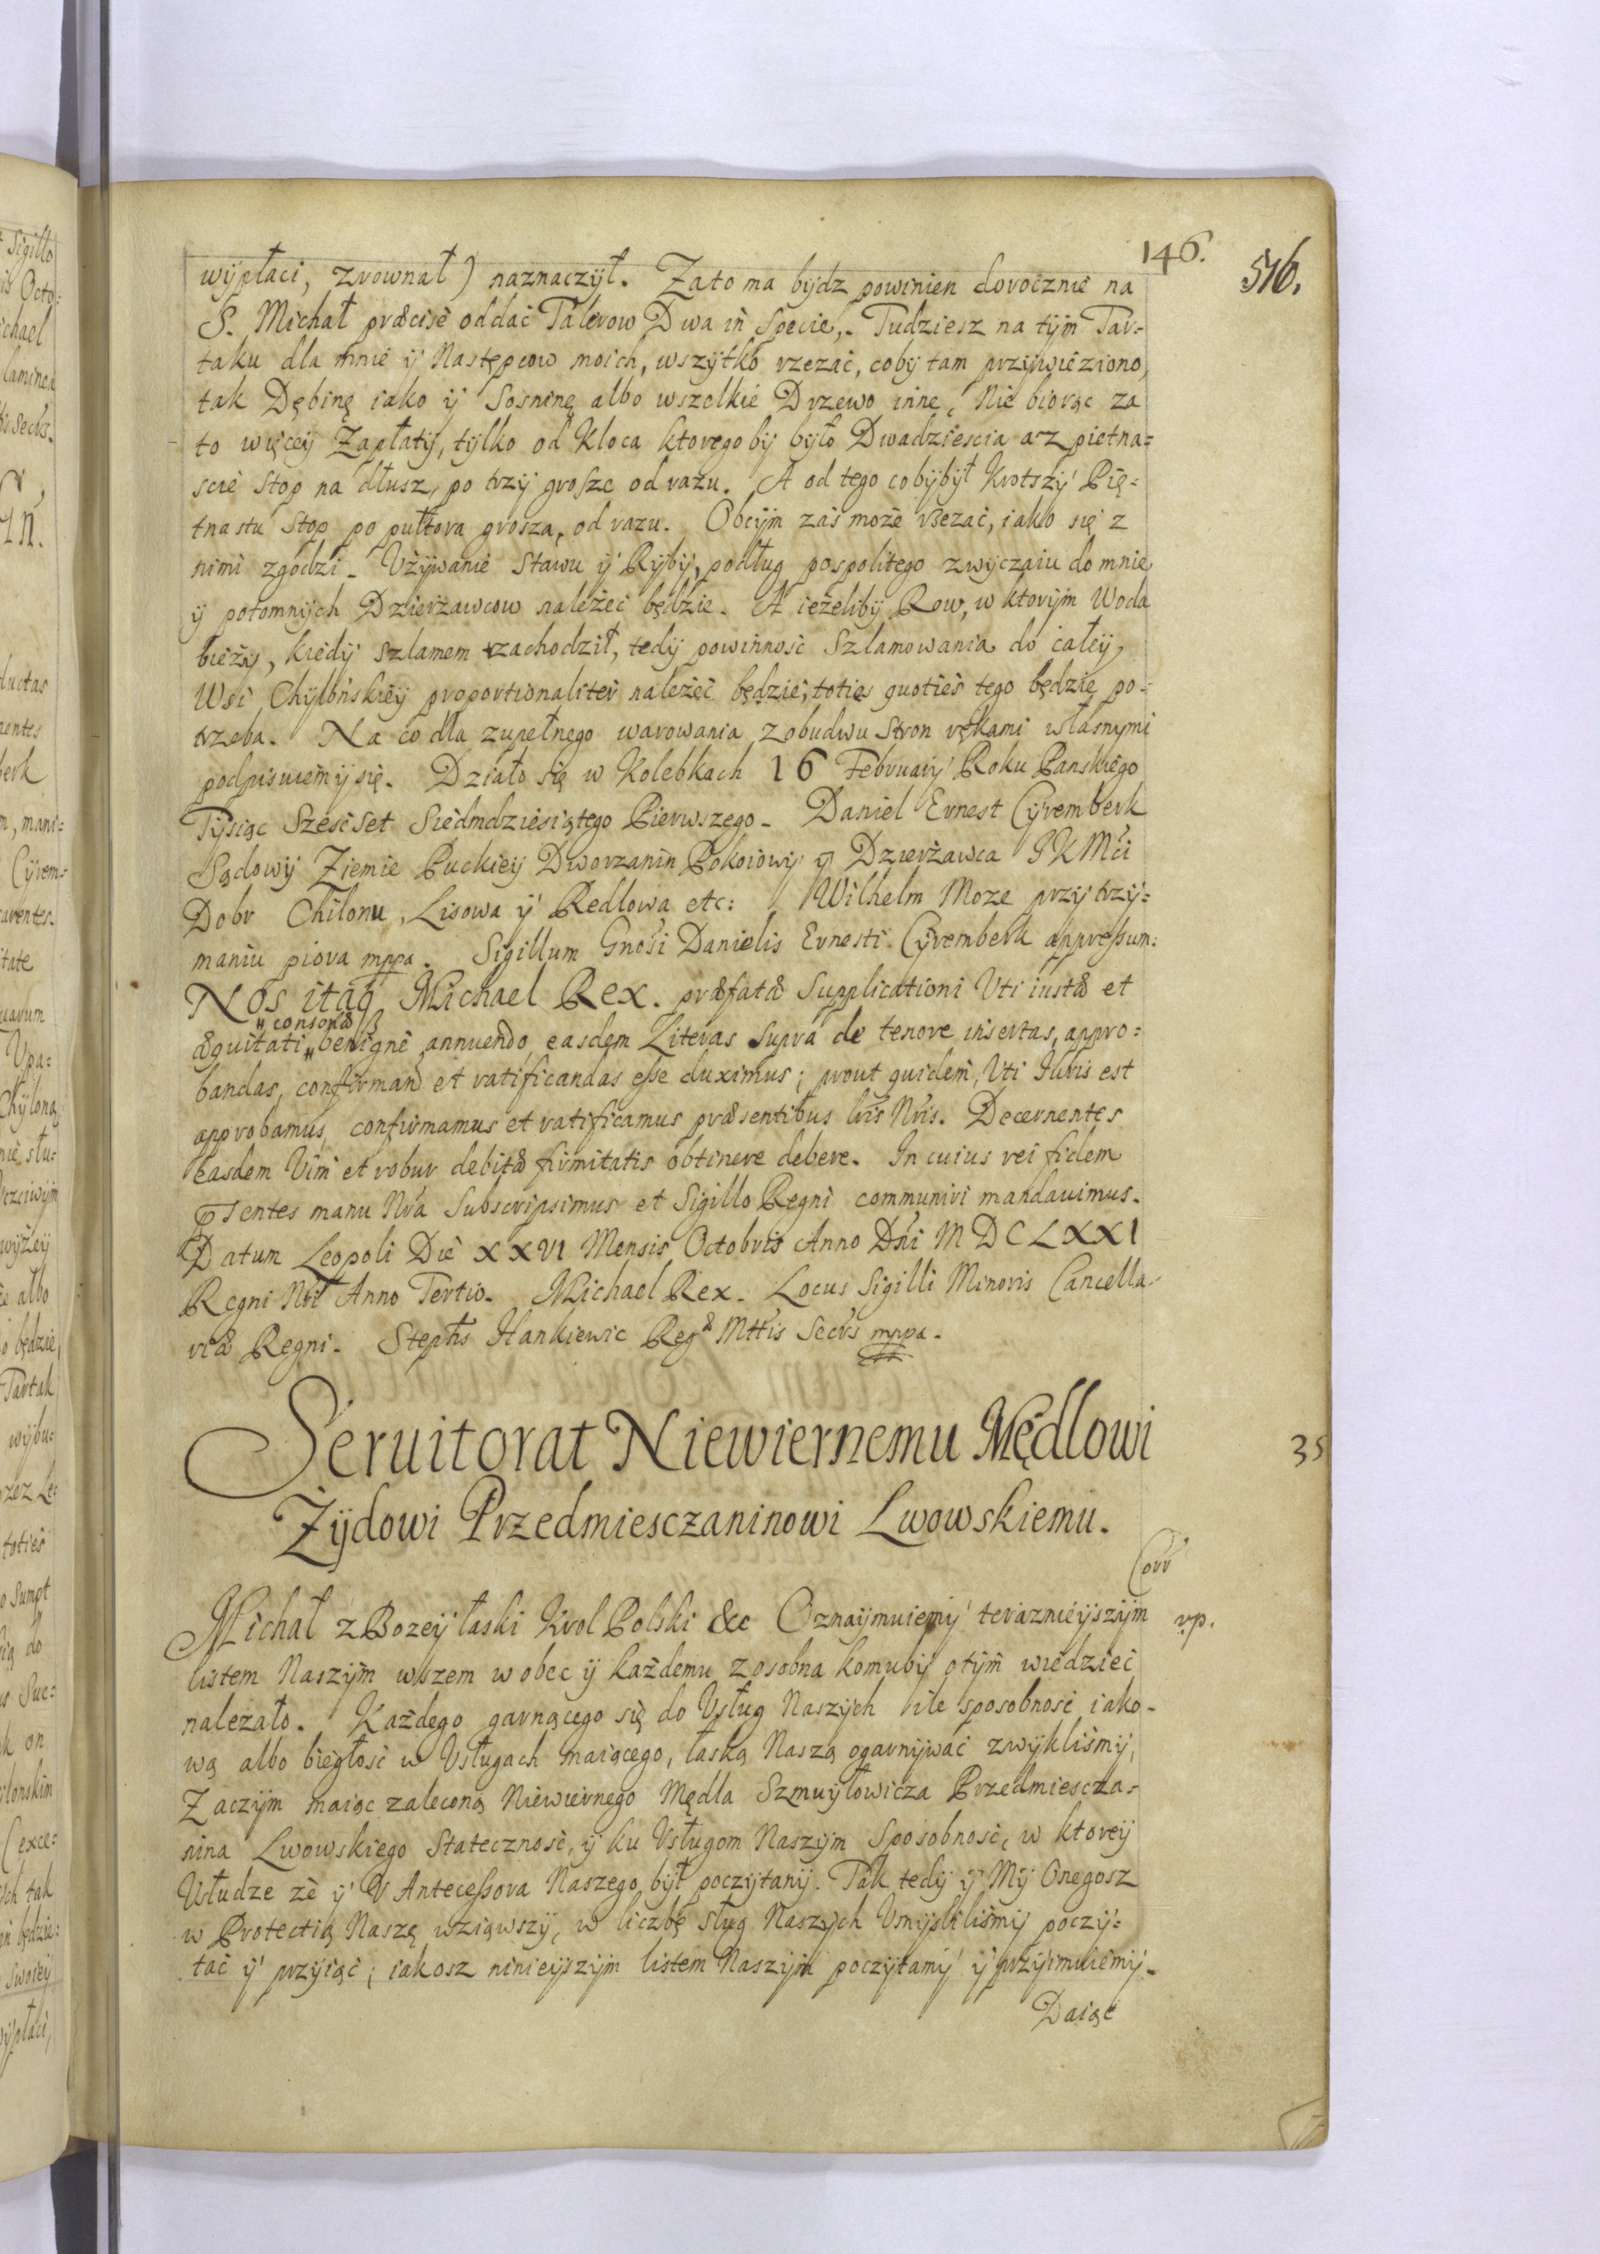 146.
516.
wypłaci, zrownał) naznaczył. Zato ma bydz powinien dorocznie na
S. Michał præcise oddać Talerow Dwa in Specie. Tudziesz na tym Tar=
taku dla mnie y Następcow moich, wszytko rzezać, coby tam przywieziono,
tak Dębinę iako y Sosninę albo wszelkie Drzewo inne, Nie biorąc za
to więcey Zapłaty, tylko od Kloca ktoregoby było Dwadziescia asz pietna=
scie Stop na dłusz, po trzy grosze od razu. A od tego cobybył Krotszy Pię=
tnastu Stop po pułtora grosza, od razu. Obcym zaś może rzezać, iako się z
nimi zgodzi. Vżywanie Stawu y Ryby, podług pospolitego zwyczaiu do mnie
y potomnych Dzierżawcow należeć będzie. A ieżeliby Row, w ktorym Woda
bieży, kiedy szlamem zachodził, tedy powinność Szlamowania do całey
Wsi Chylońskiey proportionaliter należeć będzie, toties quoties tego będzie po=
trzeba. Na co dla zupełnego warowania z obudwu Stron rękami własnymi
podpisuiemy się. Działo się w Kolebkach 16 February Roku Panskiego
Tysiąc Szescset Siedmdziesiątego Pierwszego. Daniel Ernest Cyremberk
Sądowy Ziemie Puckiey Dworzanin Pokoiowy y Dzierżawca JKMci
Dobr Chilonu, Lisowa y Redlowa etc: Wilhelm Moze przy trzy=
maniu piora mppa. Sigillum Gnosi Danielis Ernesti Cyremberk appressum:
Nos itaq Michael Rex. præfatæ Supplicationi Vti iustæ et
æquitati "consonæ" benigne annuendo, easdem Literas supra de tenore insertas, appro=
bandas, confirmand et ratificandas esse duximus; prout quidem, Vti Iuris est
approbamus, confirmamus et ratificamus præsentibus lris Nris. Decernentes
easdem Vim et robur debitæ firmitatis obtinere debere. In cuius rei fidem
pſentes manu Nra Subscripsimus et Sigillo Regni communiri mandauimus.
Datum Leopoli Die XXVI Mensis Octobris Anno Dni MDCLXXI
Regni Nri Anno Tertio. Michael Rex. Locus Sigilli Minoris Cancella=
riæ Regni. Stephs Hankiewic Regæ Mttis Secrs mppa.
Seruitorat Niewiernemu Mędlowi
35
Żydowi Przedmiesczaninowi Lwowskiemu.
Corr
Michał z Bozey łaski Krol Polski &c Oznaymuiemy teraznieyszym
rp.
listem Naszym wszem wobec y każdemu zosobna komuby otym wiedzieć
należało. Każdego garnącego się do Vsług Naszych ile sposobność iako-
wą albo biegłość w Vsługach maiącego, łaską Naszą ogarnywać zwykliśmy,
Zaczym maiąc zaleconą Niewiernego Mędla Szmuyłowicza Przedmiescza-
nina Lwowskiego Stateczność, y ku Vsługom Naszym Sposobność, w ktorey
Vsłudze że y V Antecessora Naszego był poczytany. Tak tedy y My Onegosz
w Protectią Naszę wziąwszy, w liczbę sług Naszych Vmyśliliśmy poczy=
tać y przyiąć; iakosz ninieyszym listem Naszym poczytamy y przyimuiemy.
Daiąc